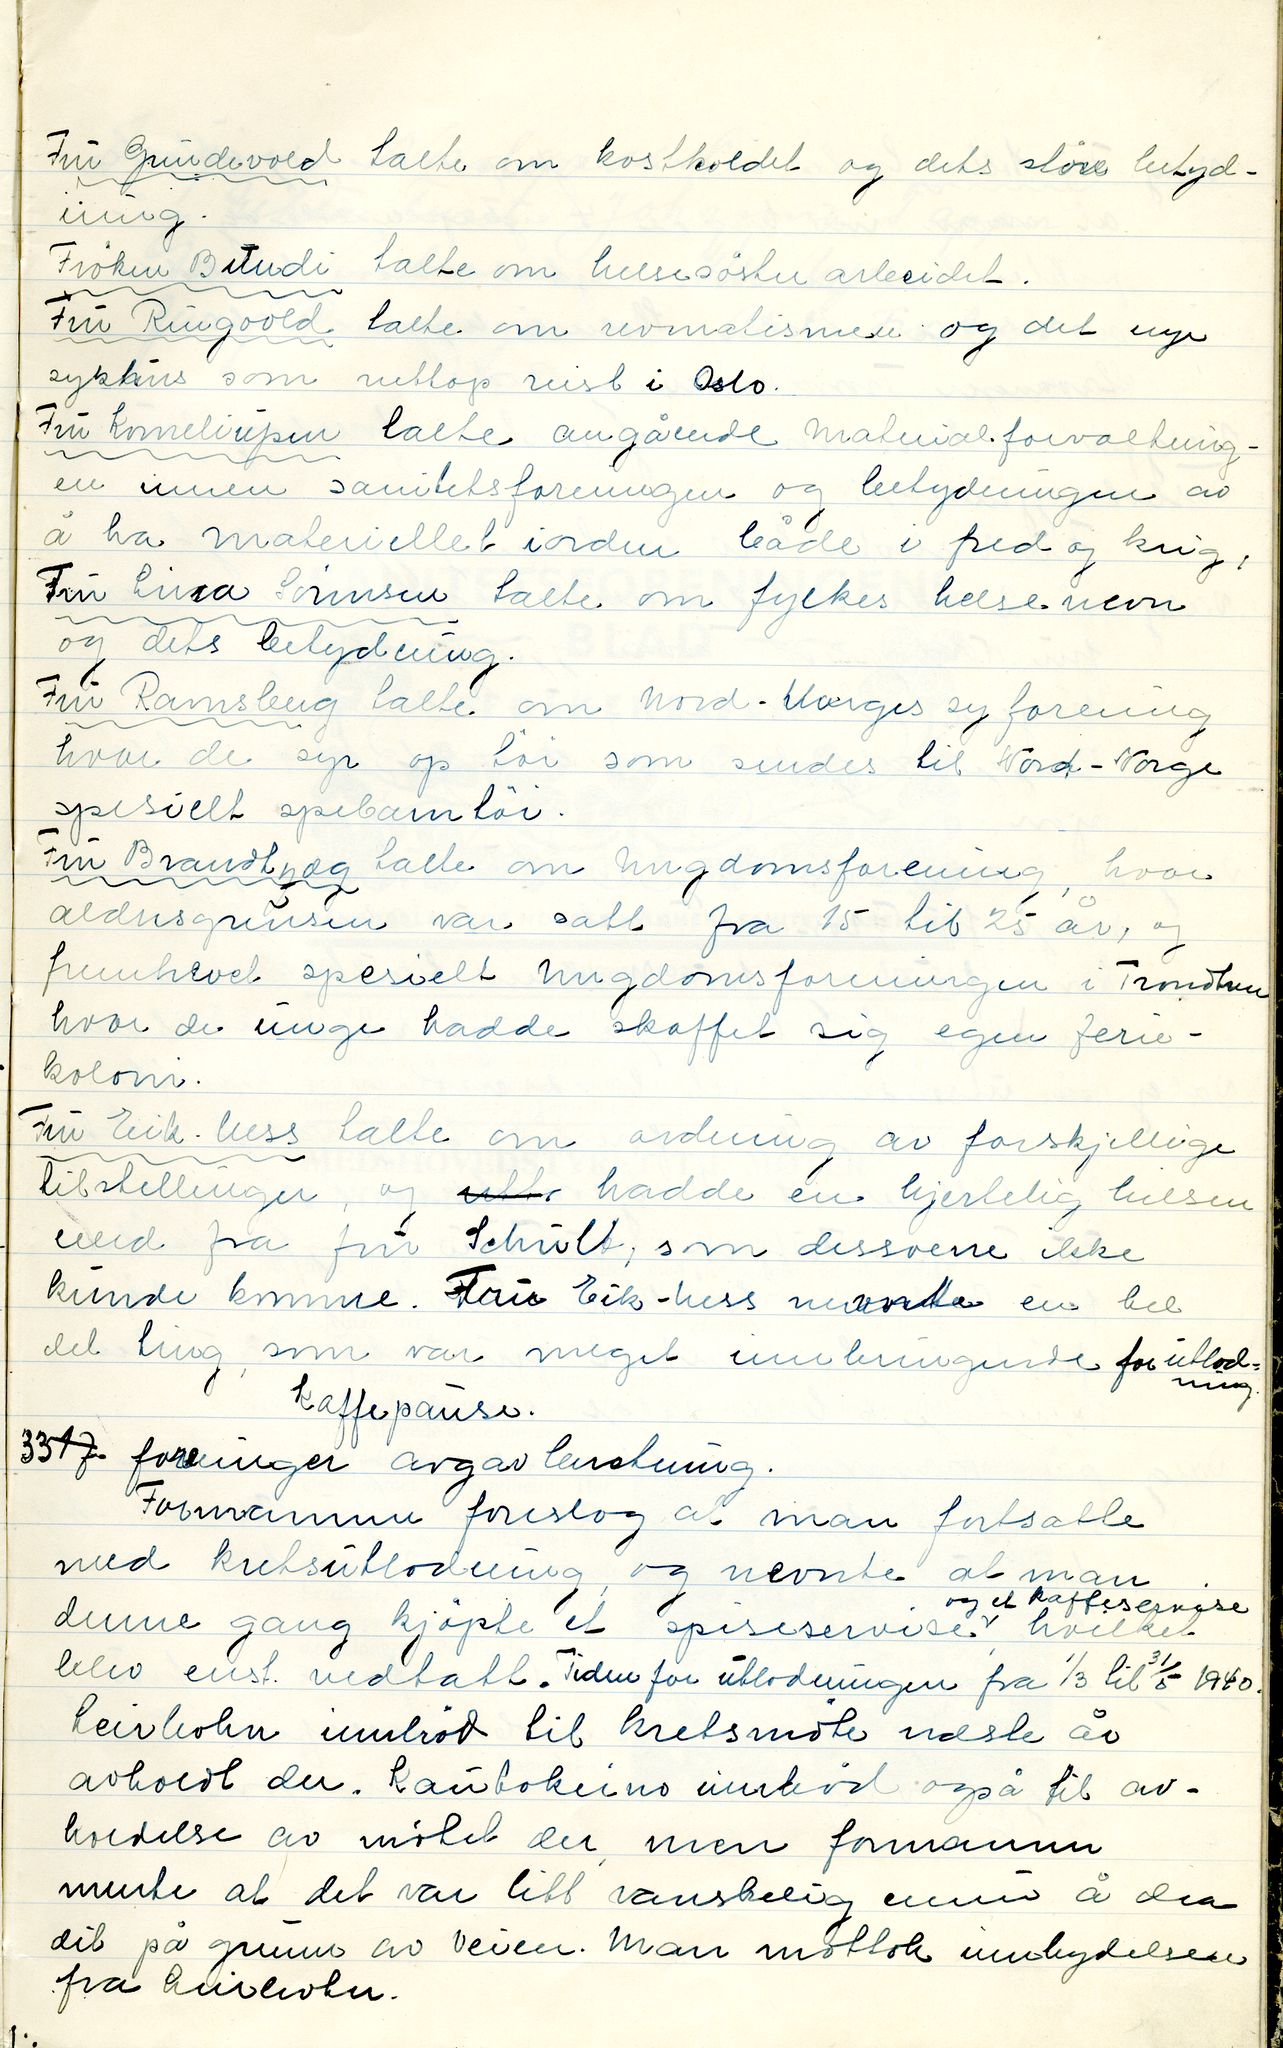 Frü Gründevold talte om kostholdet og dets störe betyd-
ning.
Fröken Bündi talte om helsesöster arbeidet.
Frü Ringvold talte om revmatismen og det nye
sykehüs som nettop reist i Oslo.
Frü Korneliüsen talte angående materialforvaltning-
en innen sanitetsforeningen og betydningen av
å ha materiellet iorden både i fred og krig,
Frü Lina Sörensen talte om fylkes helsenevn
og dets betydning.
Frü Ramsberg talte om Nord-Norges syforening
hvor de syr op töi som sendes til Nord-Norge
spesielt spebarntöi.
Frü Brandtzæg talte om Ungdomsforening, hvor
aldersgrensen var satt fra 15 til 25 år, og
fremhevet spesielt Ungdomsforeningen i Trondhem
hvor de ünge hadde skaffet sig egen ferie-
koloni.
Frü Eik-Ness talte om ordning av forskjellige
tilstellinger, og hadde en hjertelig hilsen
med fra frü Schült, som dessverre ikke
künde komme. Früe Eik-Ness nevnte en hel
del ting, som var meget innbringende for ütlod=
ning.
Kaffepaüse.
3317. foreninger avgav beretning.
Formannen foreslog at man fortsatte
med kretsütlodning, og nevnte at man
og et kaffeservise
denne gang kjöpte et spiseservise v, hvilket
blev enst. vedtatt. Tiden for ütlodningen fra 1/3 til 31/5 1940.
Leirbotn innböd til kretsmöte næste år
avholdt der. Kaütokeino innböd også til av-
holdelse av mötet der, men formannen
mente at det var litt vanskelig ennü å dra
dit på grünn av veien. Man mottok innbydelsen
fra Leirbotn.